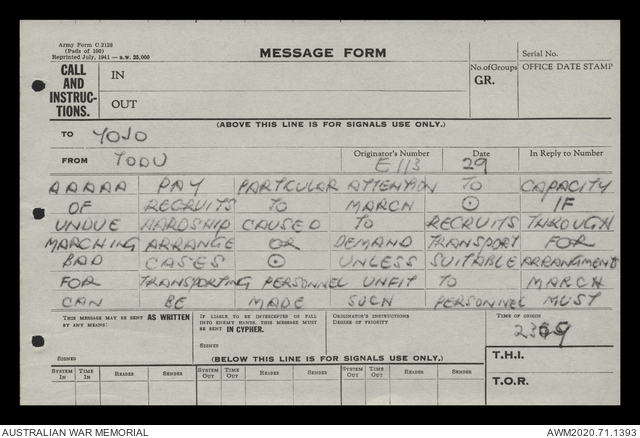 Army Form C.2128
(Pads of 100)
Reprinted July, 1941 — s.w. 25,000
MESSAGE FORM
Serial No.
CALL AND INSTRUC-TIONS.
IN
OUT
No. of Groups
GR.
OFFICE DATE STAMP
(ABOVE THIS LINE IS FOR SIGNALS USE ONLY.)
TO YOJO
FROM TODU
Originator's Number
E 113
Date
29
In Reply to Number
AAAAA PAY PARTICULAR ATTENTION TO CAPACITY
OF RECRUITS TO MARCH ⊙ IF
UNDUE HARDSHIP CAUSED TO RECRUITS THROUGH
MARCHING ARRANGE OR DEMAND TRANSPORT FOR
BAD CASES ⊙ UNLESS SUITABLE ARRANGMENTS
FOR TRANSPORTING PERSONNEL UNFIT TO MARCH
CAN BE MADE SUCH PERSONNEL MUST
THIS MESSAGE MAY BE SENT AS WRITTEN BY ANY MEANS:
SIGNED
IF LIABLE TO BE INTERCEPTED OR FALL INTO ENEMY HANDS, THIS MESSAGE MUST BE SENT IN CYPHER.
SIGNED
ORIGINATOR'S INSTRUCTIONS
DEGREE OF PRIORITY
TIME OF ORIGIN
T.H.I.
T.O.R.
(BELOW THIS LINE IS FOR SIGNALS USE ONLY.)
SYSTEM IN TIME IN READER SENDER SYSTEM OUT TIME OUT READER SENDER SYSTEM OUT TIME OUT READER SENDER
AUSTRALIAN WAR MEMORIAL
AWM2020.71.1393